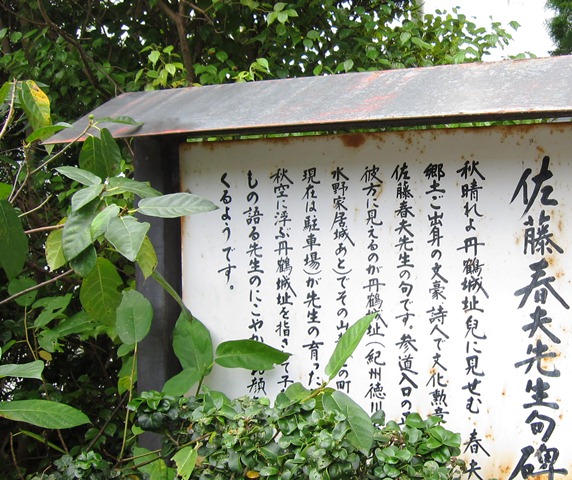 佐藤春夫先生句碑
秋晴れよ丹鶴城址児に見せむ 春夫
郷土ご出身の文豪 詩人で文化勲章
佐藤春夫先生の句です。参道入口の
彼方に見えるのが丹鶴城址（紀州徳川
水野家居城あと）でその山 の町
現在は駐車場）が先生の育った
秋空に浮ぶ丹鶴城址を指さして子
もの語る先生のにこやか 顔
くるようです。